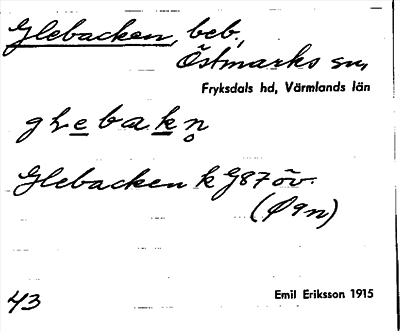 Glebacken, beb.,
Östmarks sn,
Fryksdals hd, Värmlands län
g L e b a k n̥
Glebacken k G87 öv.
(Ø9n)
43
Emil Eriksson 1915